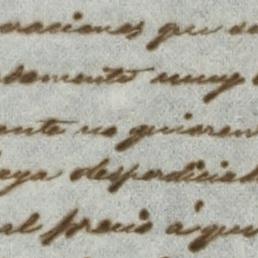 raciones que se
damente muy
ente no quieren
haya desperdicia
al precio á que